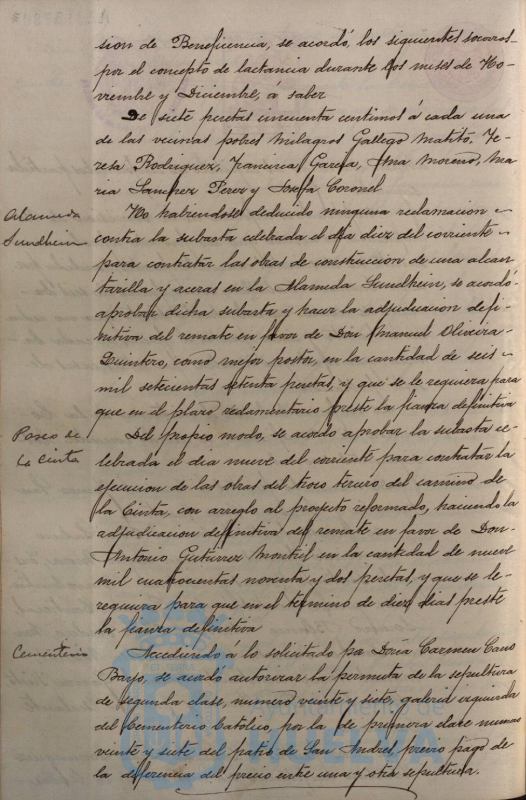 sion de Beneficencia, se acordó los siguientes socorros
por el concepto de lactancia durante los meses de No-
viembre y Diciembre, á saber
De siete pesetas cincuenta centimos á cada una
de las vecinas pobres Milagros Gallego Matito, Te-
resa Rodriguez, Francisca Garcia, Ana Moreno, Ma
ria Sanchez Perez y Josefa Coronel
Alameda
Sundheim
No habiendose deducido ninguna reclamacion
contra la subasta celebrada el dia diez del corriente
para contratar las obras de construccion de una alcan
tarilla y aceras en la Alameda Sundhein, se acordó
aprobar dicha subasta y hacer la adjudicacion defi-
nitiva del remate en favor de Don Manuel Oliveira
Quintero, como mejor postor, en la cantidad de seis
mil setecientas setenta pesetas, y que se le requiera para
que en el plazo reglamentario preste la fianza definitiva
Paseo de
la Cinta
Del propio modo, se acordo aprobar la subasta ce-
lebrada el dia nueve del corriente para contratar la
ejecucion de las obras del trozo tercero del camino de
la Cinta, con arreglo al proyecto reformado, haciendo la
adjudicacion definitiva del remate en favor de Don
Antonio Gutierrez Montiel en la cantidad de nueve
mil cuatrocientas noventa y dos pesetas, y que se le
requiera para que en el termino de diez dias preste
la fianza definitiva
Cementerio
Accediendo a lo solicitado por Doña Carmen Cano
Bayo, se acordó autorizar la permuta de la sepultura
de segunda clase, numero veinte y siete, galeria izquierda
del Cementerio Catolico, por la de primera clase numero
veinte y siete del patio de San Andres, previo pago de
la diferencia del precio entre una y otra sepultura.